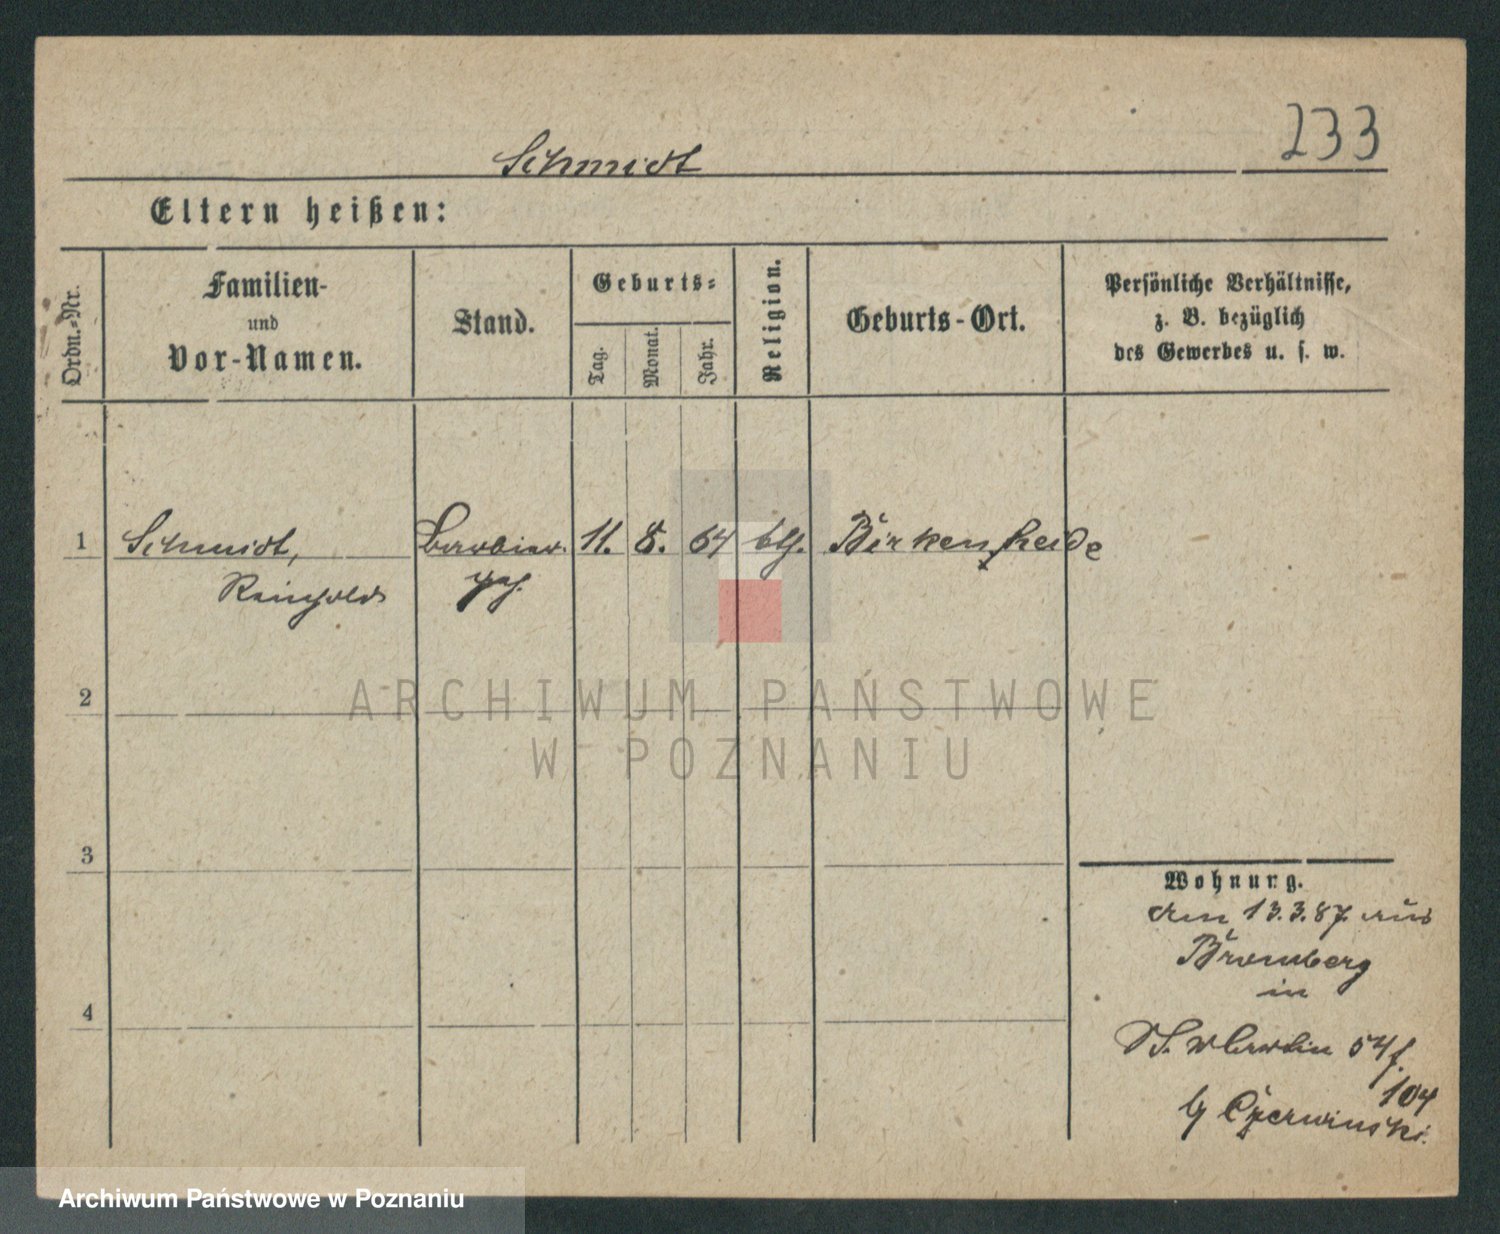 233
Schmidt
Eltern heißen:
Ordn.-Nr.
Familien-
und
Vor-Namen.
Stand.
Geburts-
Tag.
Monat.
Jahr.
Religion.
Geburts-Ort.
Persönliche Verhältnisse,
z. B. bezüglich
des Gewerbes u. s. w.
1 Schmidt, Barbier 11. 8. 64 Birkenheide
Reinhold
2
3
4
ARCHIWUM PAŃSTWOWE
W POZNANIU
Wohnung.
am 13.3.87 aus
Bromberg
in
St. Martin 54
104
b/ Czerwinski.
Archiwum Państwowe w Poznaniu